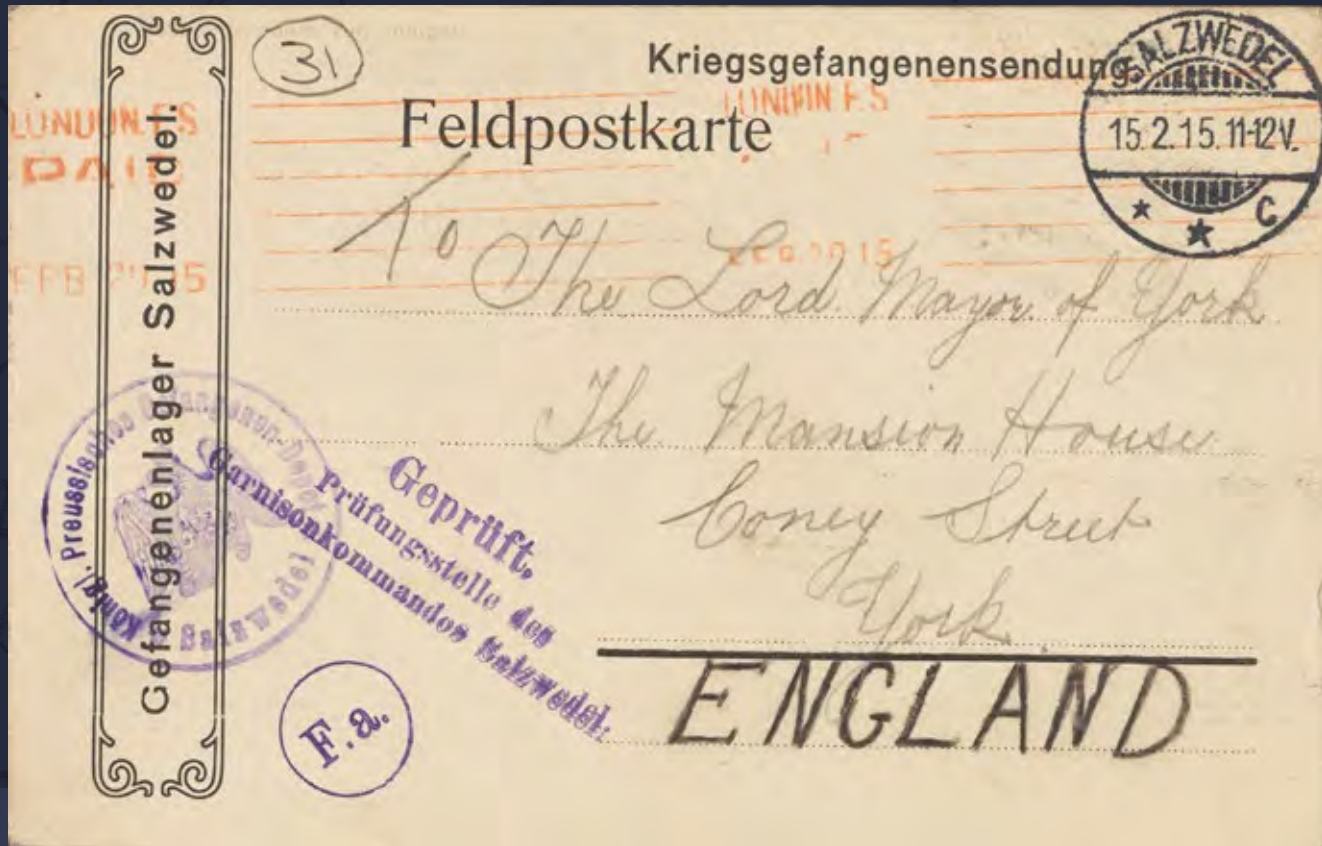 31
Kriegsgefangenensendung
Feldpostkarte
SALZWEDEL
15.2.15.11-12V.
* * C
LONDON F.S
PAID
LONDON F.S
FEB 15
15
Gefangenenlager Salzwedel.
To The Lord Mayor of York
The Mansion House
Coney Street
York
ENGLAND
Königl. Preussisches Gefangenen-Depot
Salzwedel
Geprüft.
Prüfungsstelle des
Garnisonkommandos Salzwedel.
F.a.